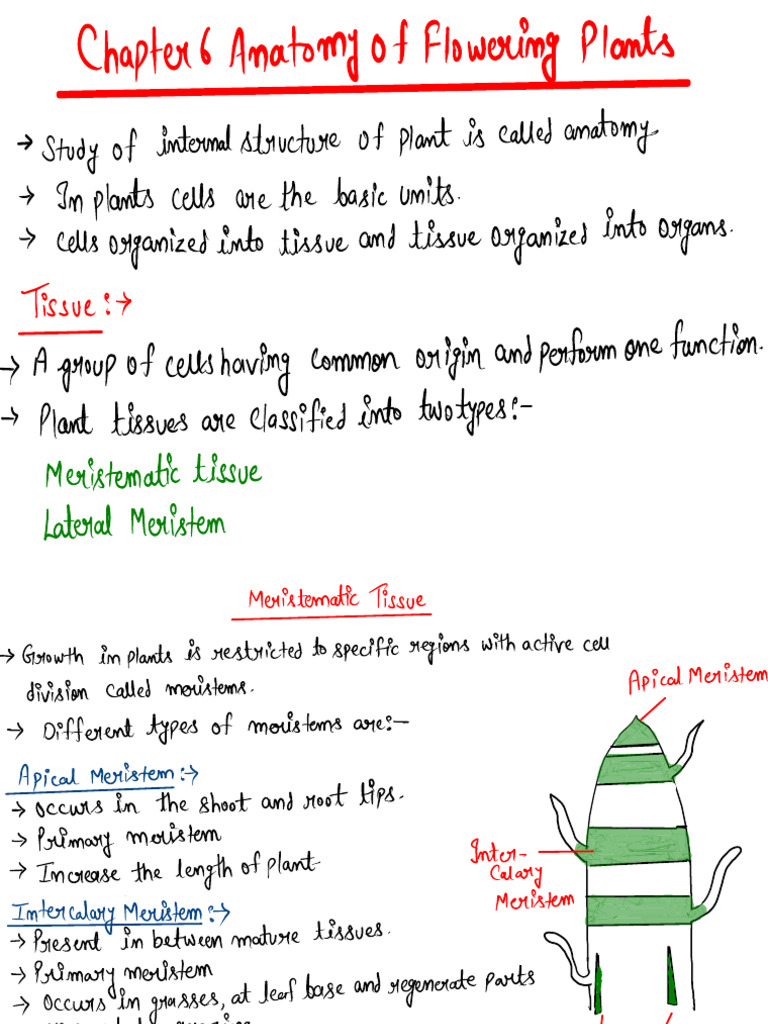 Chapter 6 Anatomy of Flowering Plants
→ Study of internal structure of plant is called anatomy
→ In plants cells are the basic units.
→ Cells organized into tissue and tissue organized into organs.
Tissue:→
→ A group of cells having common origin and perform one function.
→ Plant tissues are classified into two types:-
Meristematic tissue
Lateral Meristem
Meristematic Tissue
→ Growth in plants is restricted to specific regions with active cell
division called meristems.
→ Different types of meristems are:-
Apical Meristem:→
→ Occurs in the shoot and root tips.
→ Primary meristem
→ Increase the length of plant
Intercalary Meristem:→
→ Present in between mature tissues.
→ Primary meristem
→ Occurs in grasses, at leaf base and regenerate parts
Apical Meristem
Inter-
Calary
Meristem